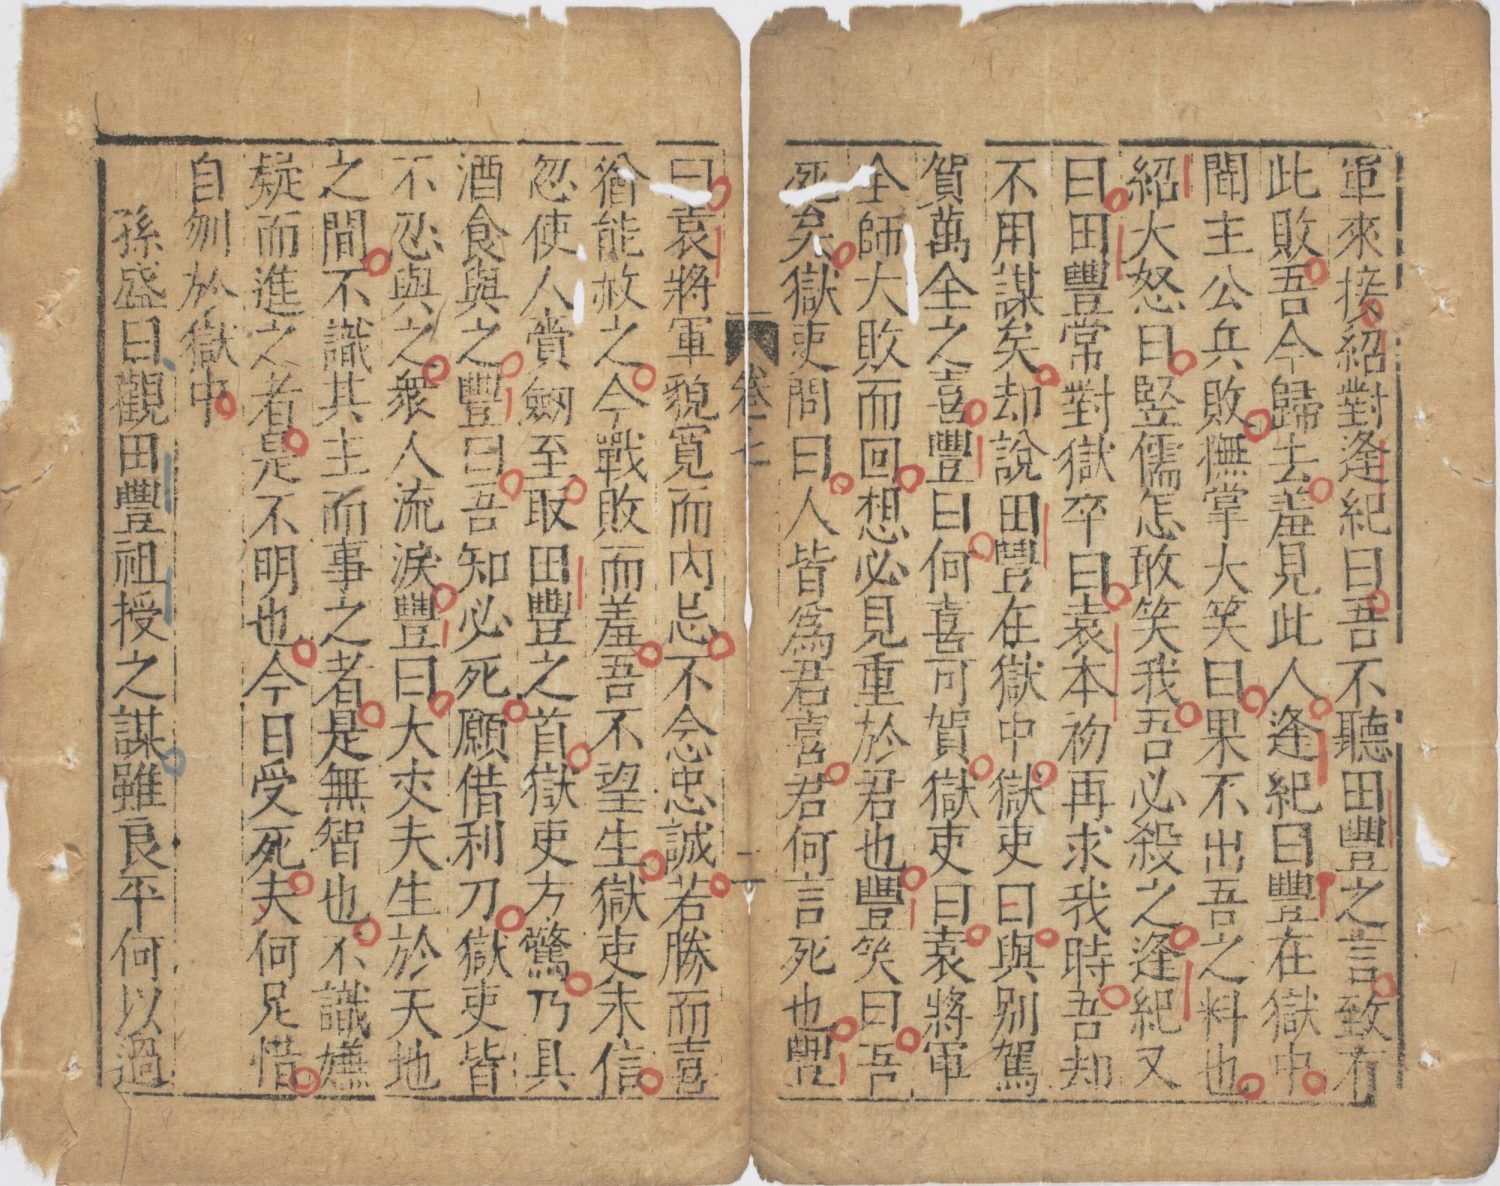 軍來接紹對逢紀曰吾不聽田豐之言致有
此敗吾今歸去羞見此人逢紀曰豐在獄中
聞主公兵敗撫掌大笑曰果不出吾之料也
紹大怒曰竪儒怎敢笑我吾必殺之逢紀又
曰田豐常對獄卒曰袁本初再求我時吾却
不用謀矣却說田豐在獄中獄吏曰與別駕
賀萬全之喜豐曰何喜可賀獄吏曰袁將軍
全師大敗而回想必見重於君也豐笑曰吾
死矣獄吏問曰人皆爲君喜君何言死也豐
卷之七
二
曰袁將軍貌寬而內忌不念忠誠若勝而喜
猶能赦之今戰敗而羞吾不望生獄吏未信
忽使人賫劔至取田豐之首獄吏方驚乃具
酒食與之豐曰吾知必死願借利刀獄吏皆
不忍與之衆人流淚豐曰大丈夫生於天地
之間不識其主而事之者是無智也不識嫌
疑而進之者是不明也今日受死夫何足惜
自刎於獄中
孫盛曰觀田豐祖授之謀雖良平何以過